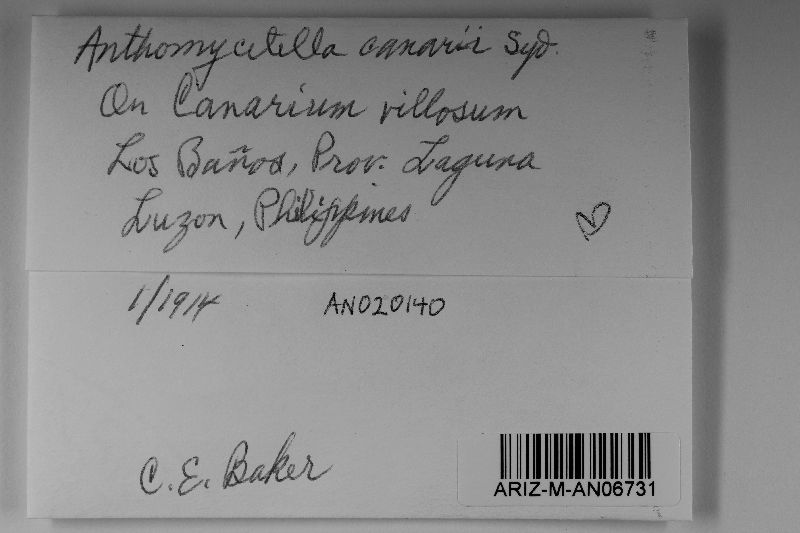 Anthomycetella canarii Syd.
On Canarium villosum
Los Baños, Prov. Laguna
Luzon, Philippines
1/1914 AN020140
C. E. Baker
ARIZ-M-AN06731